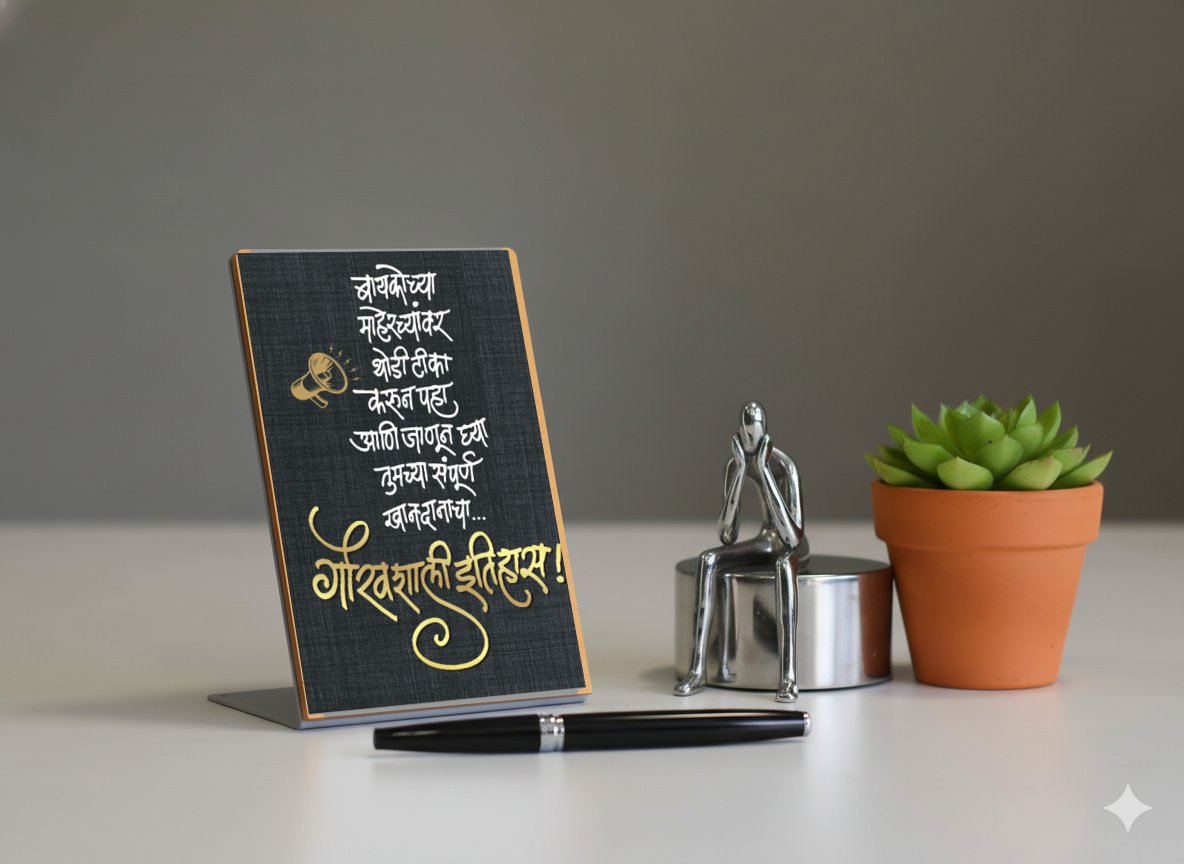 बायकोच्या
माहेरच्यांवर
थोडी टीका
करून पहा
आणि जाणून घ्या
तुमच्या संपूर्ण
खानदानाचा...
गौरवशाली इतिहास!